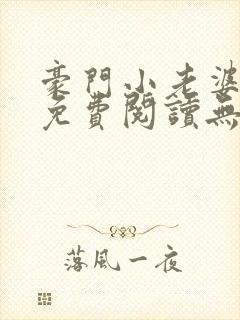 豪門小老婆
免費閱讀無
落風一夜